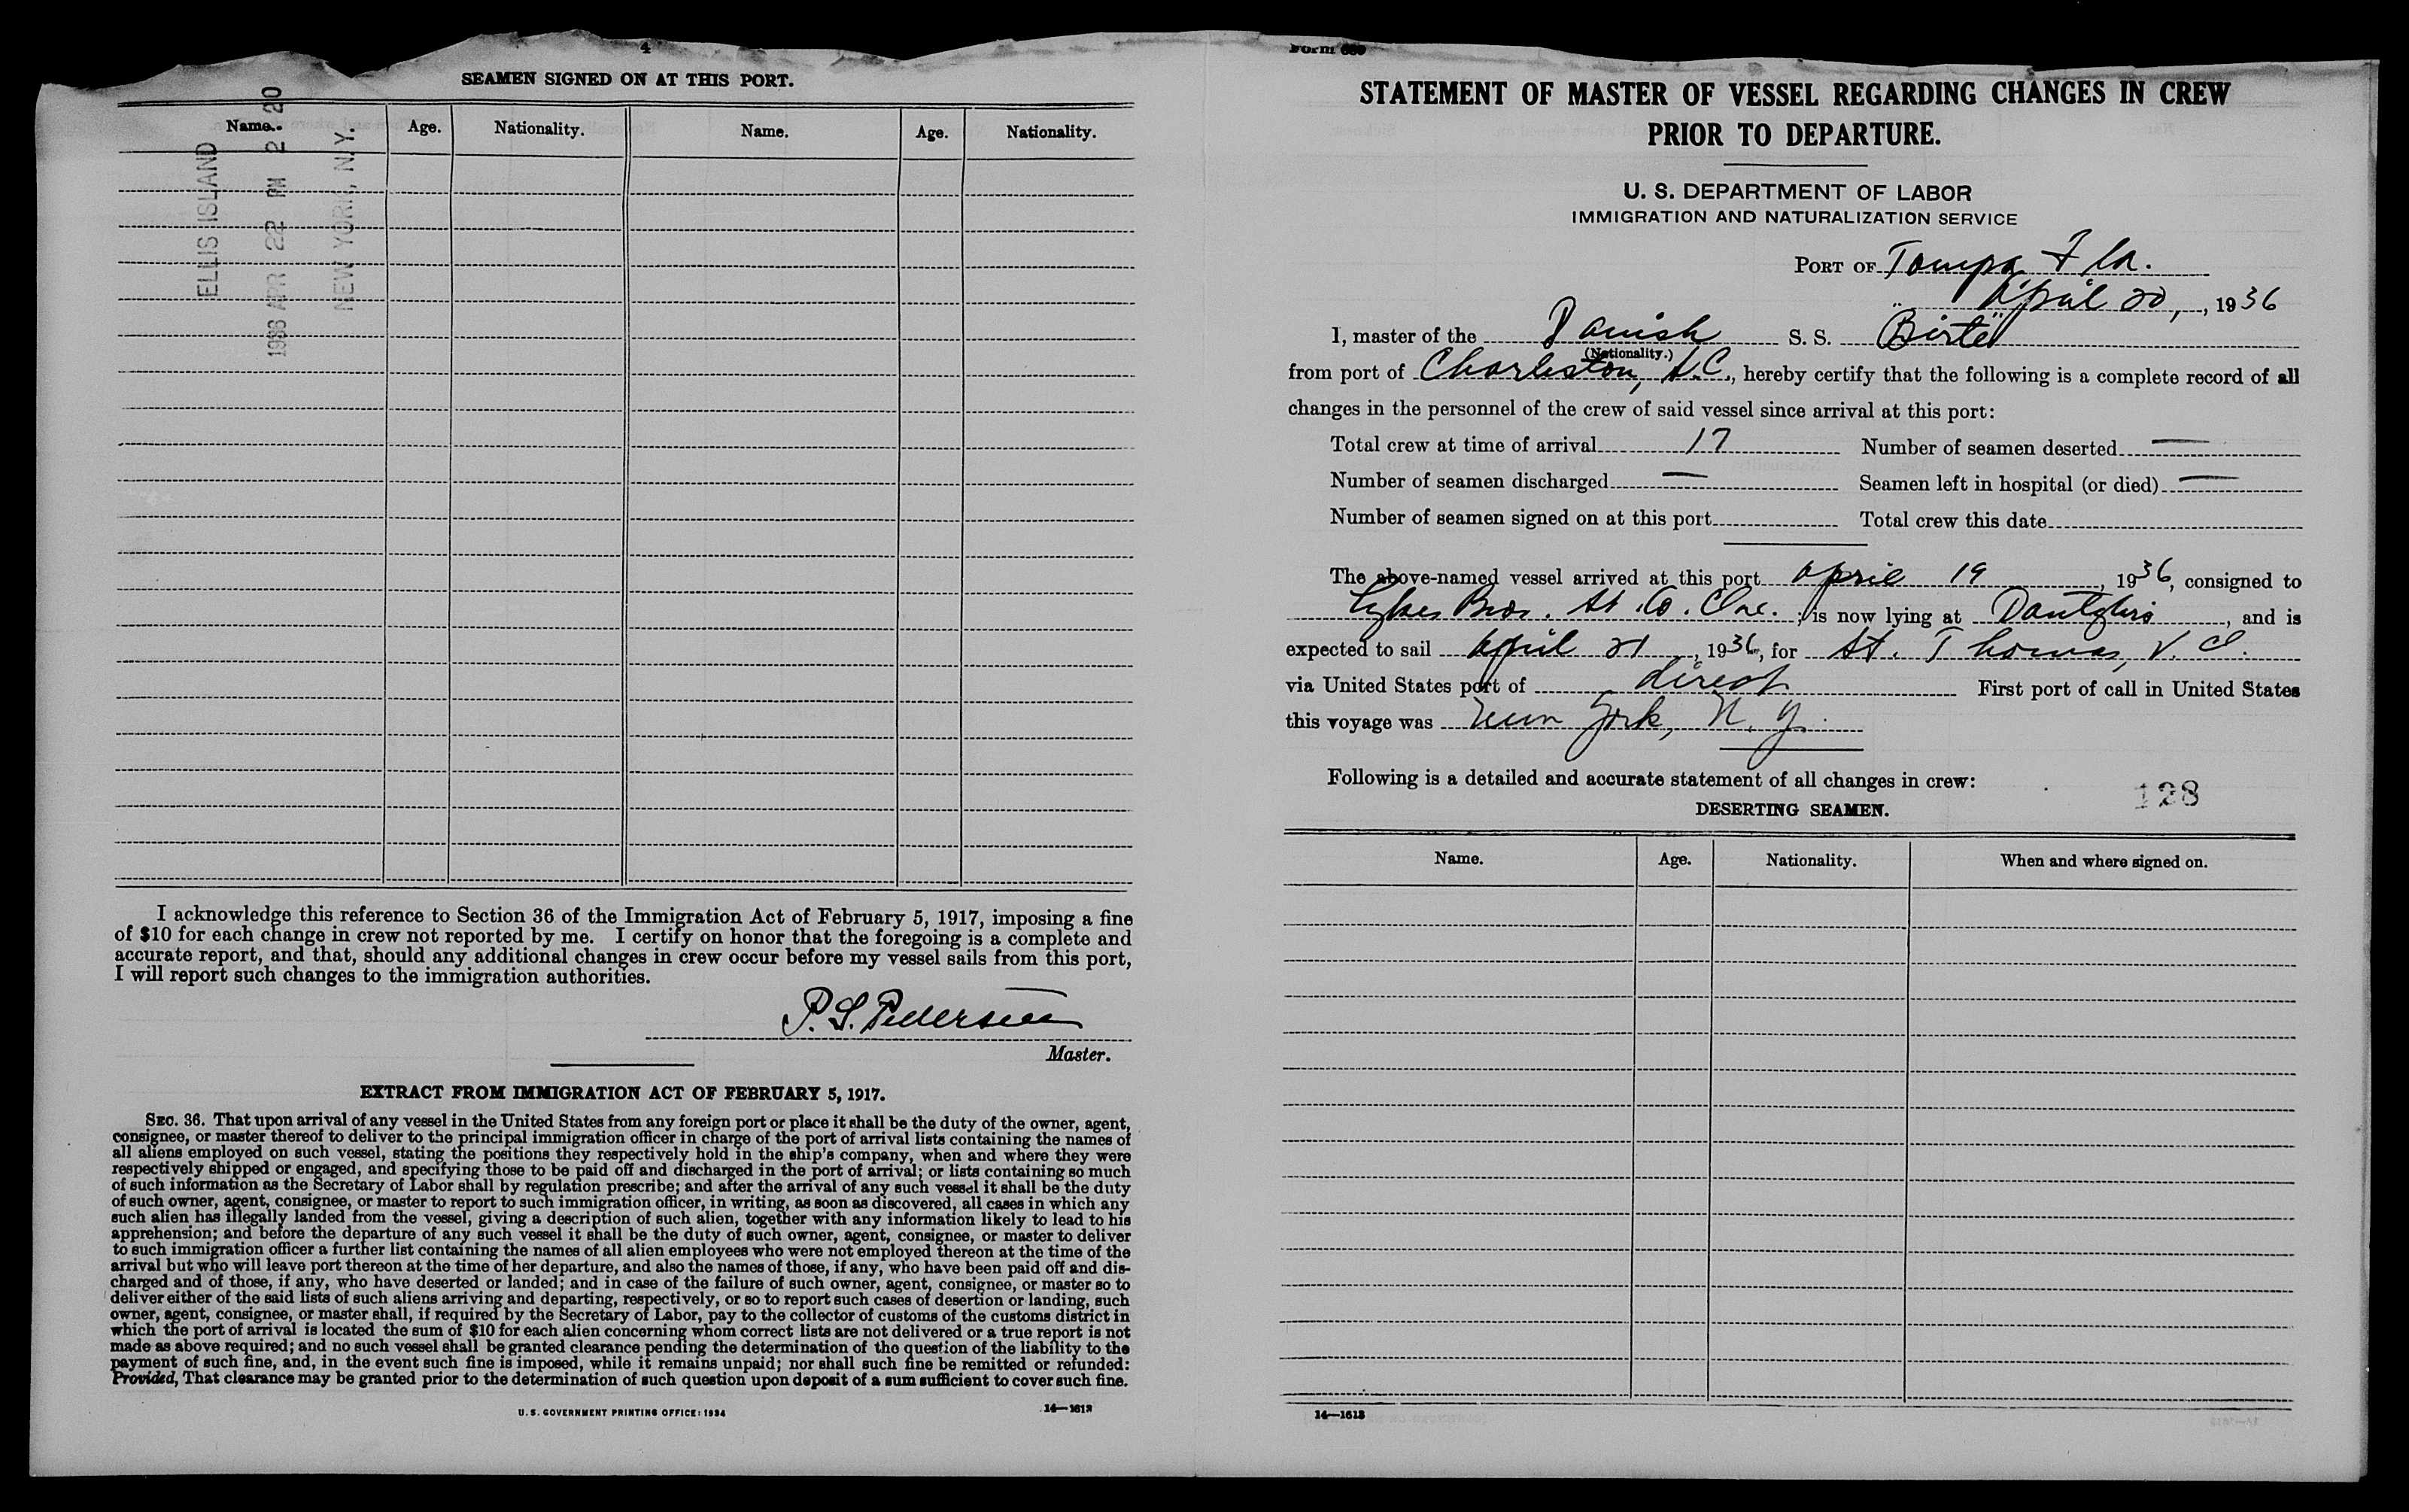 4
SEAMEN SIGNED ON AT THIS PORT.
Name. Age. Nationality. Name. Age. Nationality.
ELLIS ISLAND
1936 APR 22 PM 2 20
NEW YORK, N.Y.
I acknowledge this reference to Section 36 of the Immigration Act of February 5, 1917, imposing a fine
of $10 for each change in crew not reported by me. I certify on honor that the foregoing is a complete and
accurate report, and that, should any additional changes in crew occur before my vessel sails from this port,
I will report such changes to the immigration authorities.
P. S. Pedersen
Master.
EXTRACT FROM IMMIGRATION ACT OF FEBRUARY 5, 1917.
SEC. 36. That upon arrival of any vessel in the United States from any foreign port or place it shall be the duty of the owner, agent,
consignee, or master thereof to deliver to the principal immigration officer in charge of the port of arrival lists containing the names of
all aliens employed on such vessel, stating the positions they respectively hold in the ship's company, when and where they were
respectively shipped or engaged, and specifying those to be paid off and discharged in the port of arrival; or lists containing so much
of such information as the Secretary of Labor shall by regulation prescribe; and after the arrival of any such vessel it shall be the duty
of such owner, agent, consignee, or master to report to such immigration officer, in writing, as soon as discovered, all cases in which any
such alien has illegally landed from the vessel, giving a description of such alien, together with any information likely to lead to his
apprehension; and before the departure of any such vessel it shall be the duty of such owner, agent, consignee, or master to deliver
to such immigration officer a further list containing the names of all alien employees who were not employed thereon at the time of the
arrival but who will leave port thereon at the time of her departure, and also the names of those, if any, who have been paid off and dis-
charged and of those, if any, who have deserted or landed; and in case of the failure of such owner, agent, consignee, or master so to
deliver either of the said lists of such aliens arriving and departing, respectively, or so to report such cases of desertion or landing, such
owner, agent, consignee, or master shall, if required by the Secretary of Labor, pay to the collector of customs of the customs district in
which the port of arrival is located the sum of $10 for each alien concerning whom correct lists are not delivered or a true report is not
made as above required; and no such vessel shall be granted clearance pending the determination of the question of the liability to the
payment of such fine, and, in the event such fine is imposed, while it remains unpaid; nor shall such fine be remitted or refunded:
Provided, That clearance may be granted prior to the determination of such question upon deposit of a sum sufficient to cover such fine.
U. S. GOVERNMENT PRINTING OFFICE: 1934 14—1613
Form 689
STATEMENT OF MASTER OF VESSEL REGARDING CHANGES IN CREW
PRIOR TO DEPARTURE.
U. S. DEPARTMENT OF LABOR
IMMIGRATION AND NATURALIZATION SERVICE
PORT OF Tampa Fla.
April 20, , 1936
I, master of the Danish S. S. "Birte"
(Nationality.)
from port of Charleston, S.C., hereby certify that the following is a complete record of all
changes in the personnel of the crew of said vessel since arrival at this port:
Total crew at time of arrival 17 Number of seamen deserted —
Number of seamen discharged — Seamen left in hospital (or died) —
Number of seamen signed on at this port Total crew this date
The above-named vessel arrived at this port April 19, 1936, consigned to
Lykes Bros. SS. Co. Inc.; is now lying at , and is
expected to sail April 21, 1936, for St. Thomas, V. I.
via United States port of direct First port of call in United States
this voyage was New York, N. Y.
Following is a detailed and accurate statement of all changes in crew:
128
DESERTING SEAMEN.
Name. Age. Nationality. When and where signed on.
14—1613